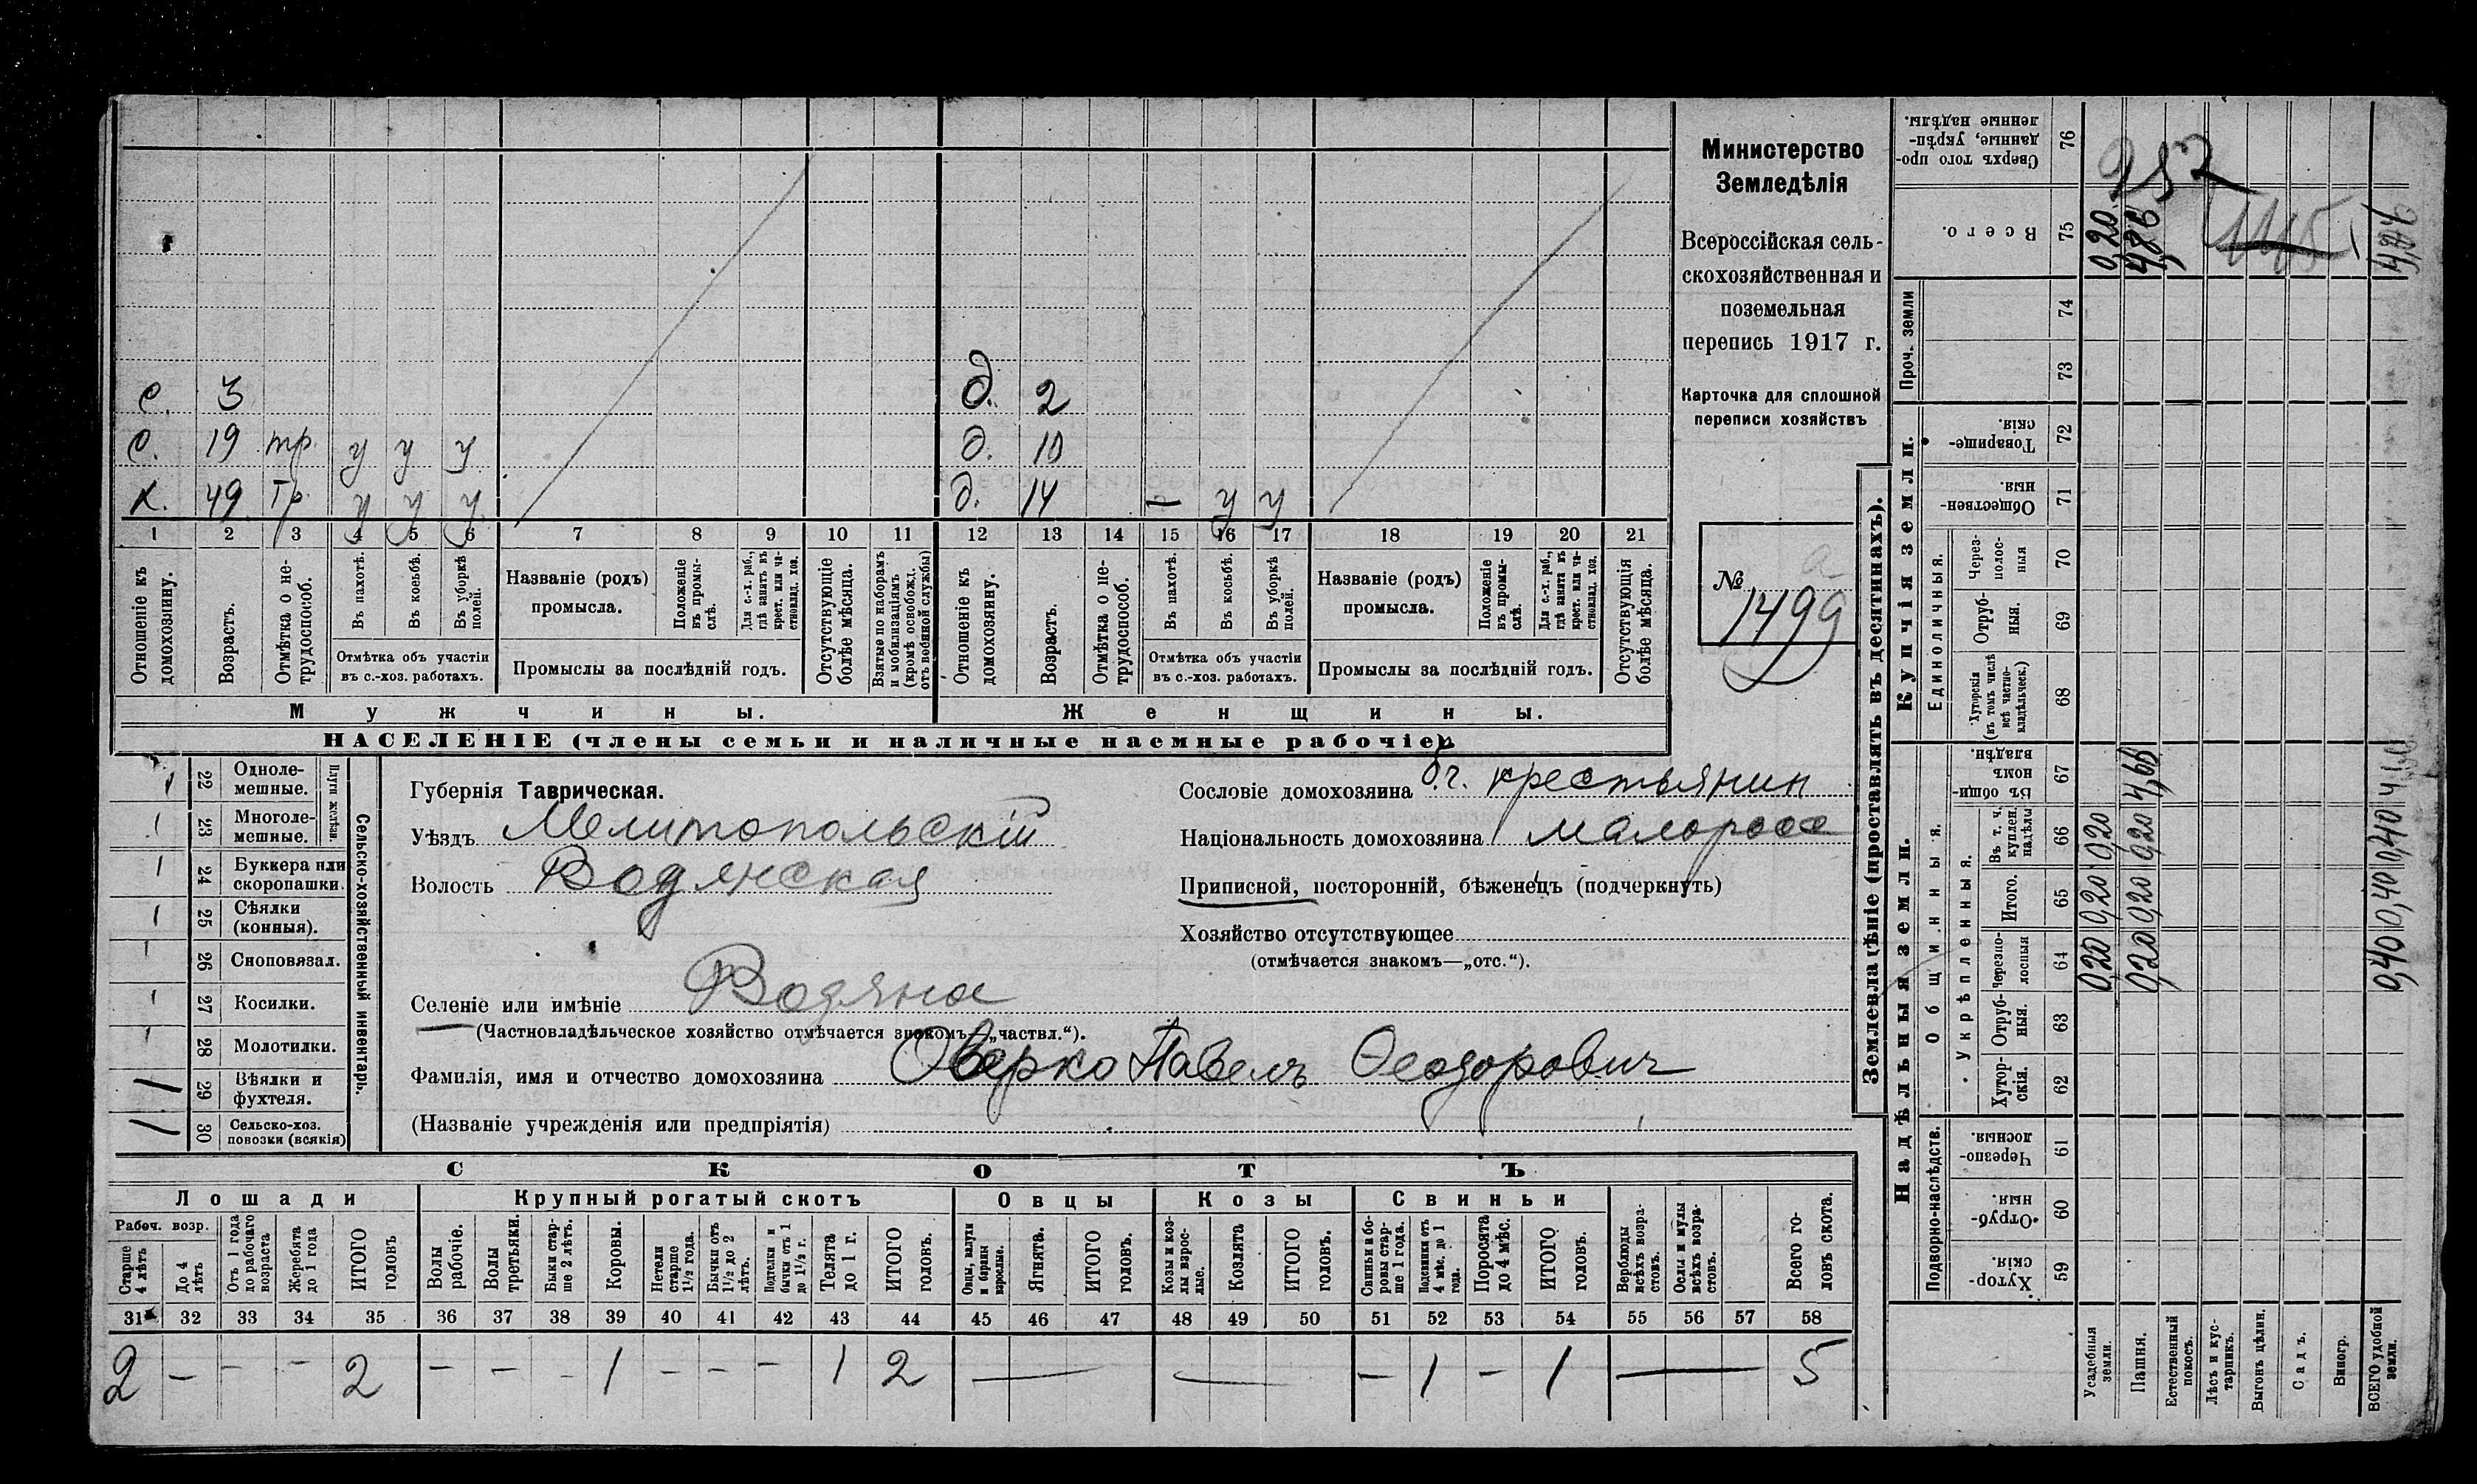 Министерство
Земледѣлія
Всероссійская сель-
скохозяйственная и
поземельная
перепись 1917 г.
Карточка для сплошной
переписи хозяйствъ
№ 1499
с. 3
с. 19 тр. у у у
х. 49 тр. у у у
д. 2
д. 10
д. 14 — у у
1 2 3 4 5 6 7 8 9 10 11 12 13 14 15 16 17 18 19 20 21
Отношеніе къ домохозяину.
Возрастъ.
Отмѣтка о не-трудоспособ.
Въ пахотѣ.
Въ косьбѣ.
Въ уборкѣ полей.
Отмѣтка объ участіи
въ с.-хоз. работахъ.
Названіе (родъ)
промысла.
Положеніе въ промы-слѣ.
Для с.-х. раб., гдѣ занятъ въ крест. или ча-стновлад. хоз.
Промыслы за послѣдній годъ.
Отсутствующіе болѣе мѣсяца.
Взятые по наборамъ и мобилизаціямъ (кромѣ освобожд. отъ военной службы)
Отношеніе къ домохозяину.
Возрастъ.
Отмѣтка о не-трудоспособ.
Въ пахотѣ.
Въ косьбѣ.
Въ уборкѣ полей.
Отмѣтка объ участіи
въ с.-хоз. работахъ.
Названіе (родъ)
промысла.
Положеніе въ промы-слѣ.
Для с.-х. раб., гдѣ занята въ крест. или ча-стновлад. хоз.
Промыслы за послѣдній годъ.
Отсутствующія болѣе мѣсяца.
Мужчины.
Женщины.
НАСЕЛЕНІЕ (члены семьи и наличные наемные рабочіе).
Сельско-хозяйственный инвентарь.
Плуги желѣзн.
22 Одноле-мешные.
23 Многоле-мешные.
24 Буккера или скоропашки.
25 Сѣялки (конныя).
26 Сноповязал.
27 Косилки.
28 Молотилки.
29 Вѣялки и фухтеля.
30 Сельско-хоз. повозки (всякія)
Губернія Таврическая.
Уѣздъ Мелитопольскій
Волость Водянская
Селеніе или имѣніе Водяна
(Частновладѣльческое хозяйство отмѣчается знакомъ—„частвл.“).
Фамилія, имя и отчество домохозяина Оверко Павелъ Ѳеодорович
(Названіе учрежденія или предпріятія)
Сословіе домохозяина б.г. крестьянин
Національность домохозяина малоросс
Приписной, посторонній, бѣженецъ (подчеркнуть)
Хозяйство отсутствующее
(отмѣчается знакомъ—„отс.“).
СКОТЪ
Лошади
Крупный рогатый скотъ
Овцы
Козы
Свиньи
Рабоч. возр.
Старше 4 лѣтъ
До 4 лѣтъ
Отъ 1 года до рабочаго возраста
Жеребята до 1 года
ИТОГО головъ
Волы рабочіе.
Волы третьяки.
Быки стар-ше 2 лѣтъ.
Коровы.
Нетели старше 1½ года.
Бычки отъ 1½ до 2 лѣтъ.
Подтелки и бычки отъ 1 до 1½ г.
Телята до 1 г.
ИТОГО головъ.
Овцы, валухи и бараны взрослые.
Ягнята.
ИТОГО головъ.
Козы и коз-лы взрос-лые.
Козлята
ИТОГО головъ.
Свиньи и бо-ровы стар-ше 1 года.
Подсвинки отъ 4 мѣс. до 1 года.
Поросята до 4 мѣс.
ИТОГО головъ.
Верблюды всѣхъ возра-стовъ.
Ослы и мулы всѣхъ возра-стовъ.
Всего го-ловъ скота.
31 32 33 34 35 36 37 38 39 40 41 42 43 44 45 46 47 48 49 50 51 52 53 54 55 56 57 58
2 — — — 2 — — — 1 — — — 1 2 — — — 1 — 1 — 5
Землевладѣніе (проставлять въ десятинахъ).
Надѣльныя земли.
Купчія земли.
Проч. земли
Подворно-наслѣдств.
Общинныя.
Укрѣпленныя.
Единоличныя.
Сверхъ того про-данные, укрѣп-ленные надѣлы. 76
Всего. 75
74
73
Товарище-скія. 72
Обществен-ныя. 71
Через-полос-ныя 70
Отруб-ныя. 69
Хуторскія (въ томъ числѣ всѣ частно-владѣльческ.) 68
Въ общин-номъ владѣн. 67
Въ т. ч. куплен. надѣлы 66
Итого. 65
Черезпо-лосныя 64
Отруб-ныя. 63
Хутор-скія. 62
Черезпо-лосныя. 61
Отруб-ныя. 60
Хутор-скія. 59
Усадебныя земли. 0,20 0,20 0,20 0,20
Пашня. 0,20 0,20 0,20 4,66 4,86
Естественный покосъ.
Лѣсъ и кус-тарникъ.
Выгонъ цѣлин.
Садъ.
Виногр.
ВСЕГО удобной земли. 0,40 0,40 0,40
252